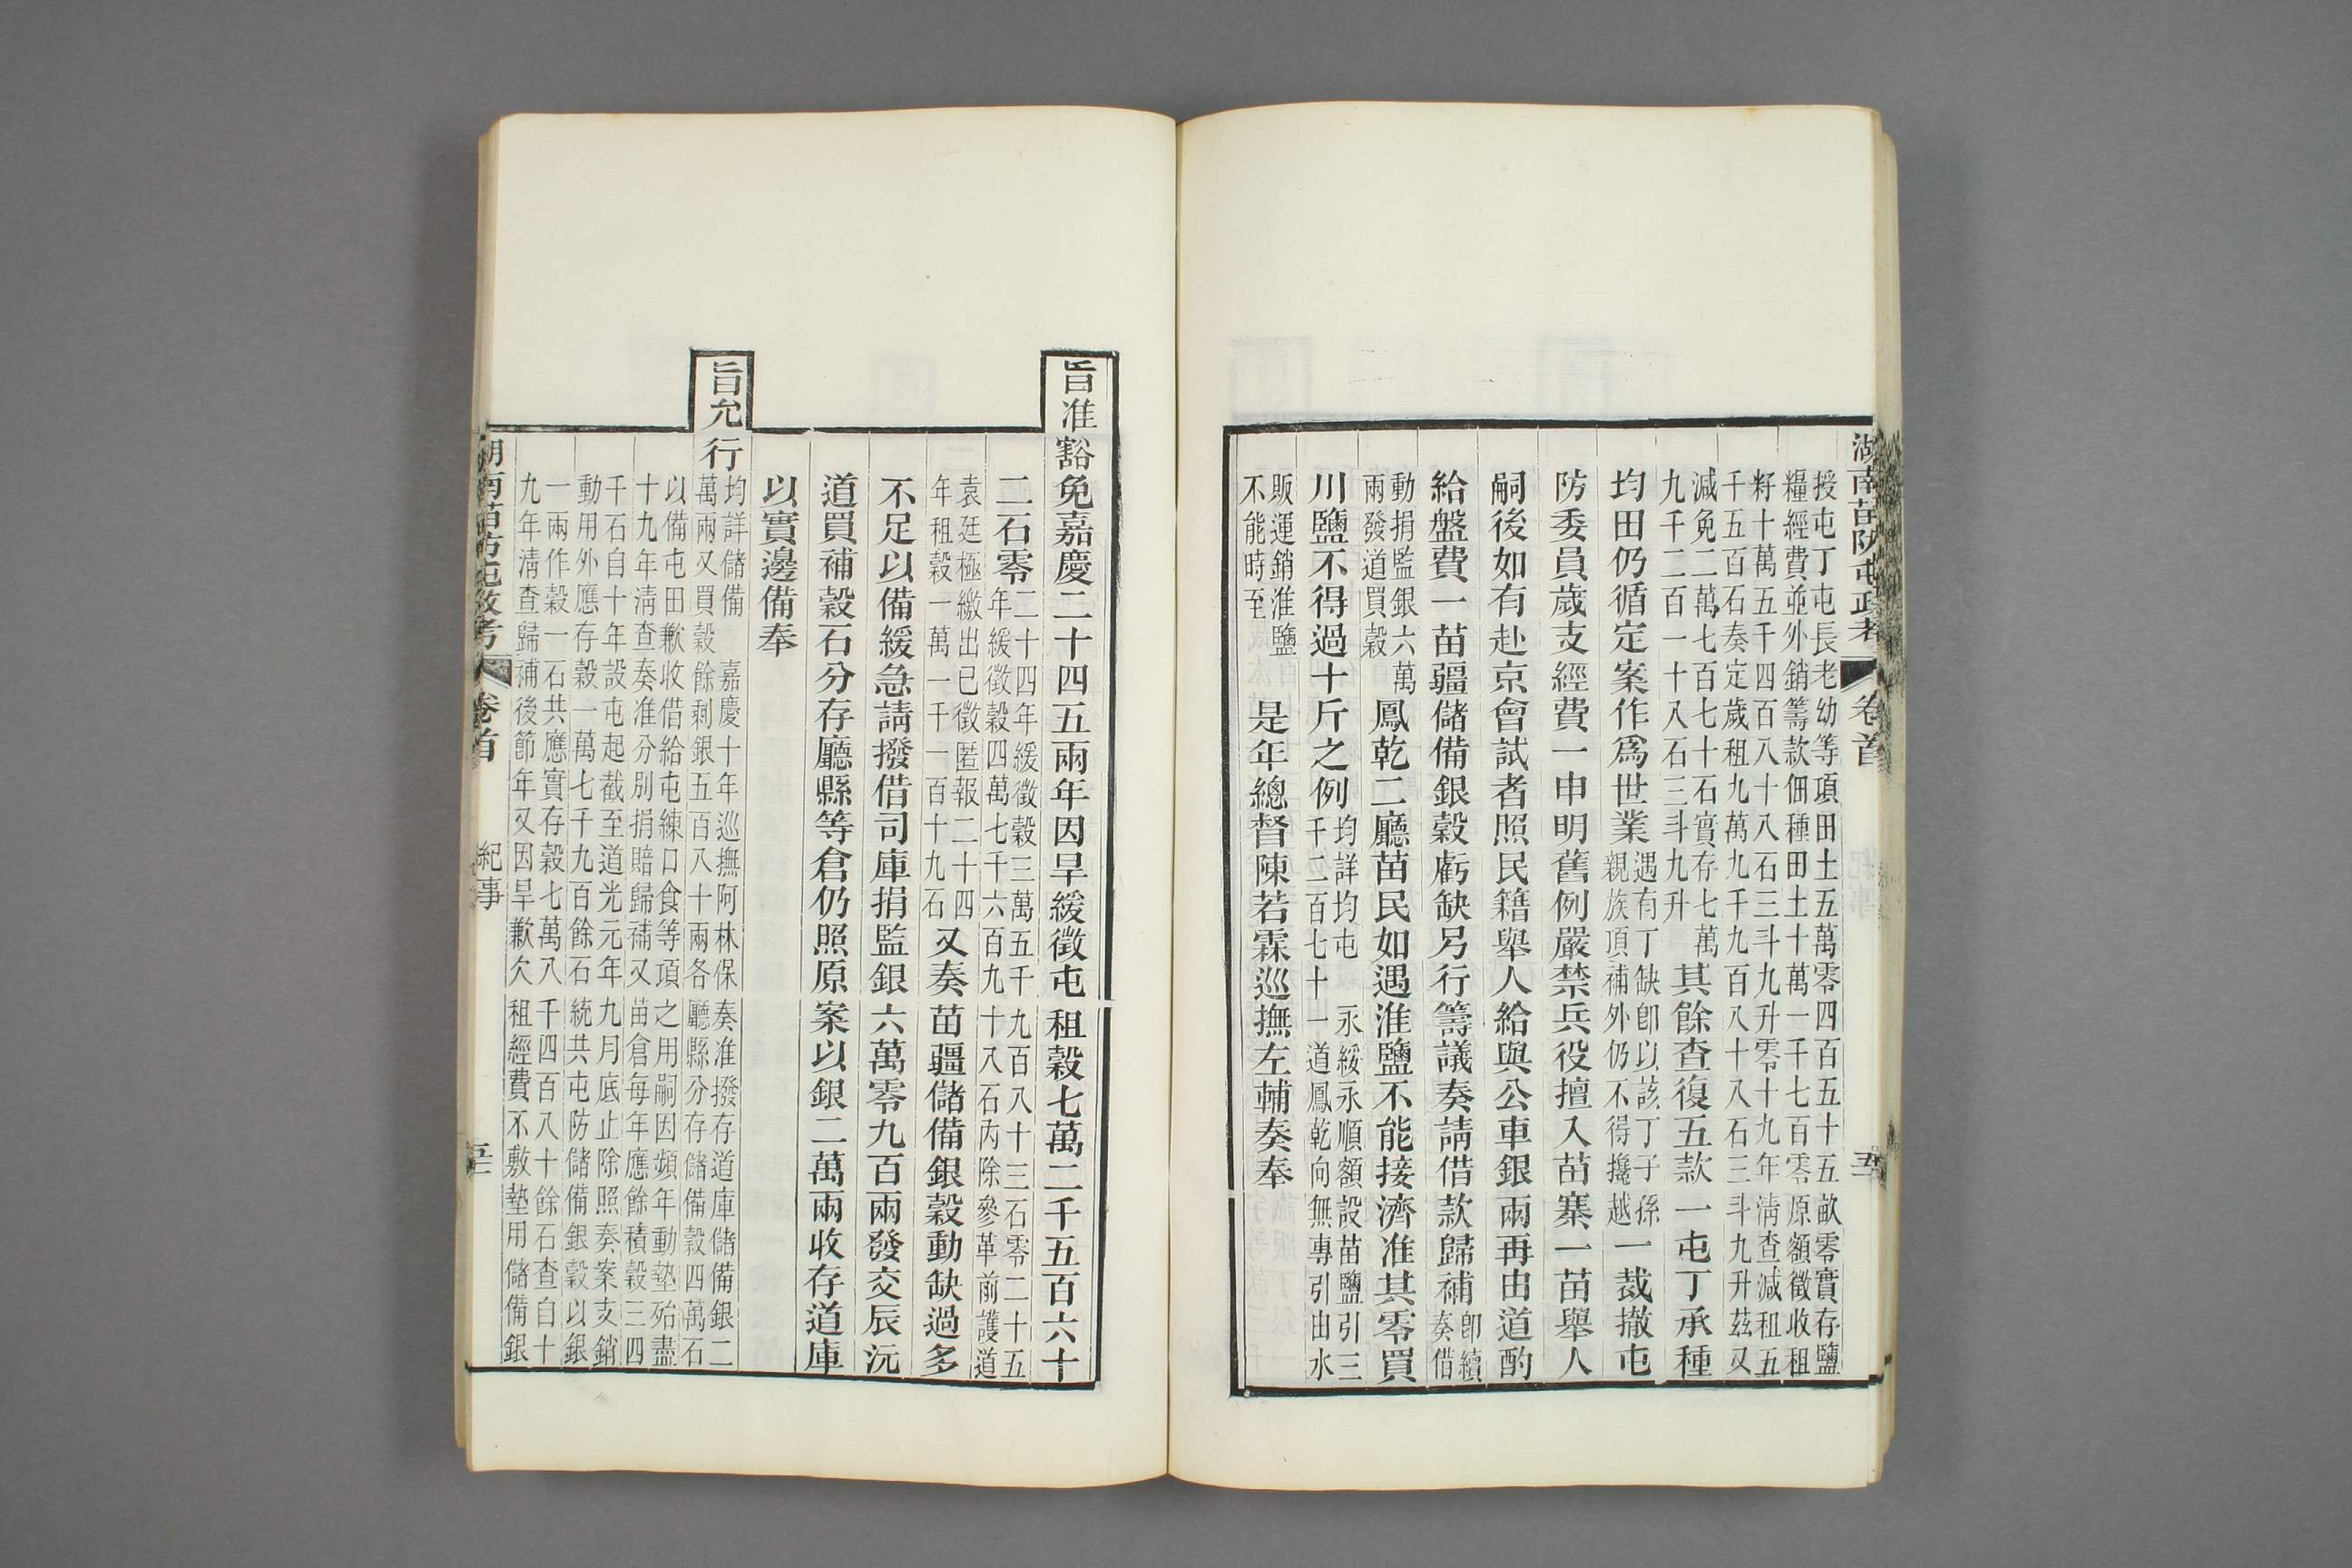 湖南苗防屯政考 卷首
授屯丁屯長老幼等項田土五萬零四百五十五畝零實存鹽
糧經費並外銷籌款佃種田土十萬一千七百零原額徵收租
籽十萬五千四百八十八石三斗九升零十九年淸查減租五
千五百石奏定歲租九萬九千九百八十八石三斗九升茲又
減免二萬七百七十石實存七萬
九千二百一十八石三斗九升
其餘查復五款一屯丁承種
均田仍循定案作爲世業
遇有丁缺卽以該丁子孫
親族頂補外仍不得攙越
一裁撤屯
防委員歲支經費一申明舊例嚴禁兵役擅入苗寨一苗舉人
嗣後如有赴京會試者照民籍舉人給與公車銀兩再由道酌
給盤費一苗疆儲備銀穀虧缺另行籌議奏請借款歸補
卽續
奏借
動捐監銀六萬
兩發道買穀
鳳乾二廳苗民如遇淮鹽不能接濟准其零買
川鹽不得過十斤之例
均詳均屯
千二百七十一道鳳乾向無專引由水
永綏永順額設苗鹽引三
販運銷淮鹽
不能時至
是年總督陳若霖巡撫左輔奏奉
旨准豁免嘉慶二十四五兩年因旱緩徵屯租穀七萬二千五百六十
二石零
二十四年緩徵穀三萬五千九百八十三石零二十五
年緩徵穀四萬七千六百九十八石丙除參革前護道
袁廷極繳出已徵匿報二十四
年租穀一萬一千一百十九石
又奏苗疆儲備銀穀動缺過多
不足以備緩急請撥借司庫捐監銀六萬零九百兩發交辰沅
道買補穀石分存廳縣等倉仍照原案以銀二萬兩收存道庫
以實邊備奉
旨允行
均詳儲備
萬兩又買穀
嘉慶十年巡撫阿林保奏准撥存道庫儲備銀二
餘剩銀五百八十兩各廳縣分存儲備穀四萬石
以備屯田歉收借給屯練口食等項之用嗣因頻年動墊殆盡
十九年淸查奏准分別捐賠歸補又苗倉每年應餘積穀三四
千石自十年設屯起截至道光元年九月底止除照奏案支銷
動用外應存穀一萬七千九百餘石統共屯防儲備銀穀以銀
一兩作穀一石共應實存穀七萬八千四百八十餘石查自十
九年淸查歸補後節年又因旱歉欠租經費不敷墊用儲備銀
湖南苗防屯政考 卷首 紀事